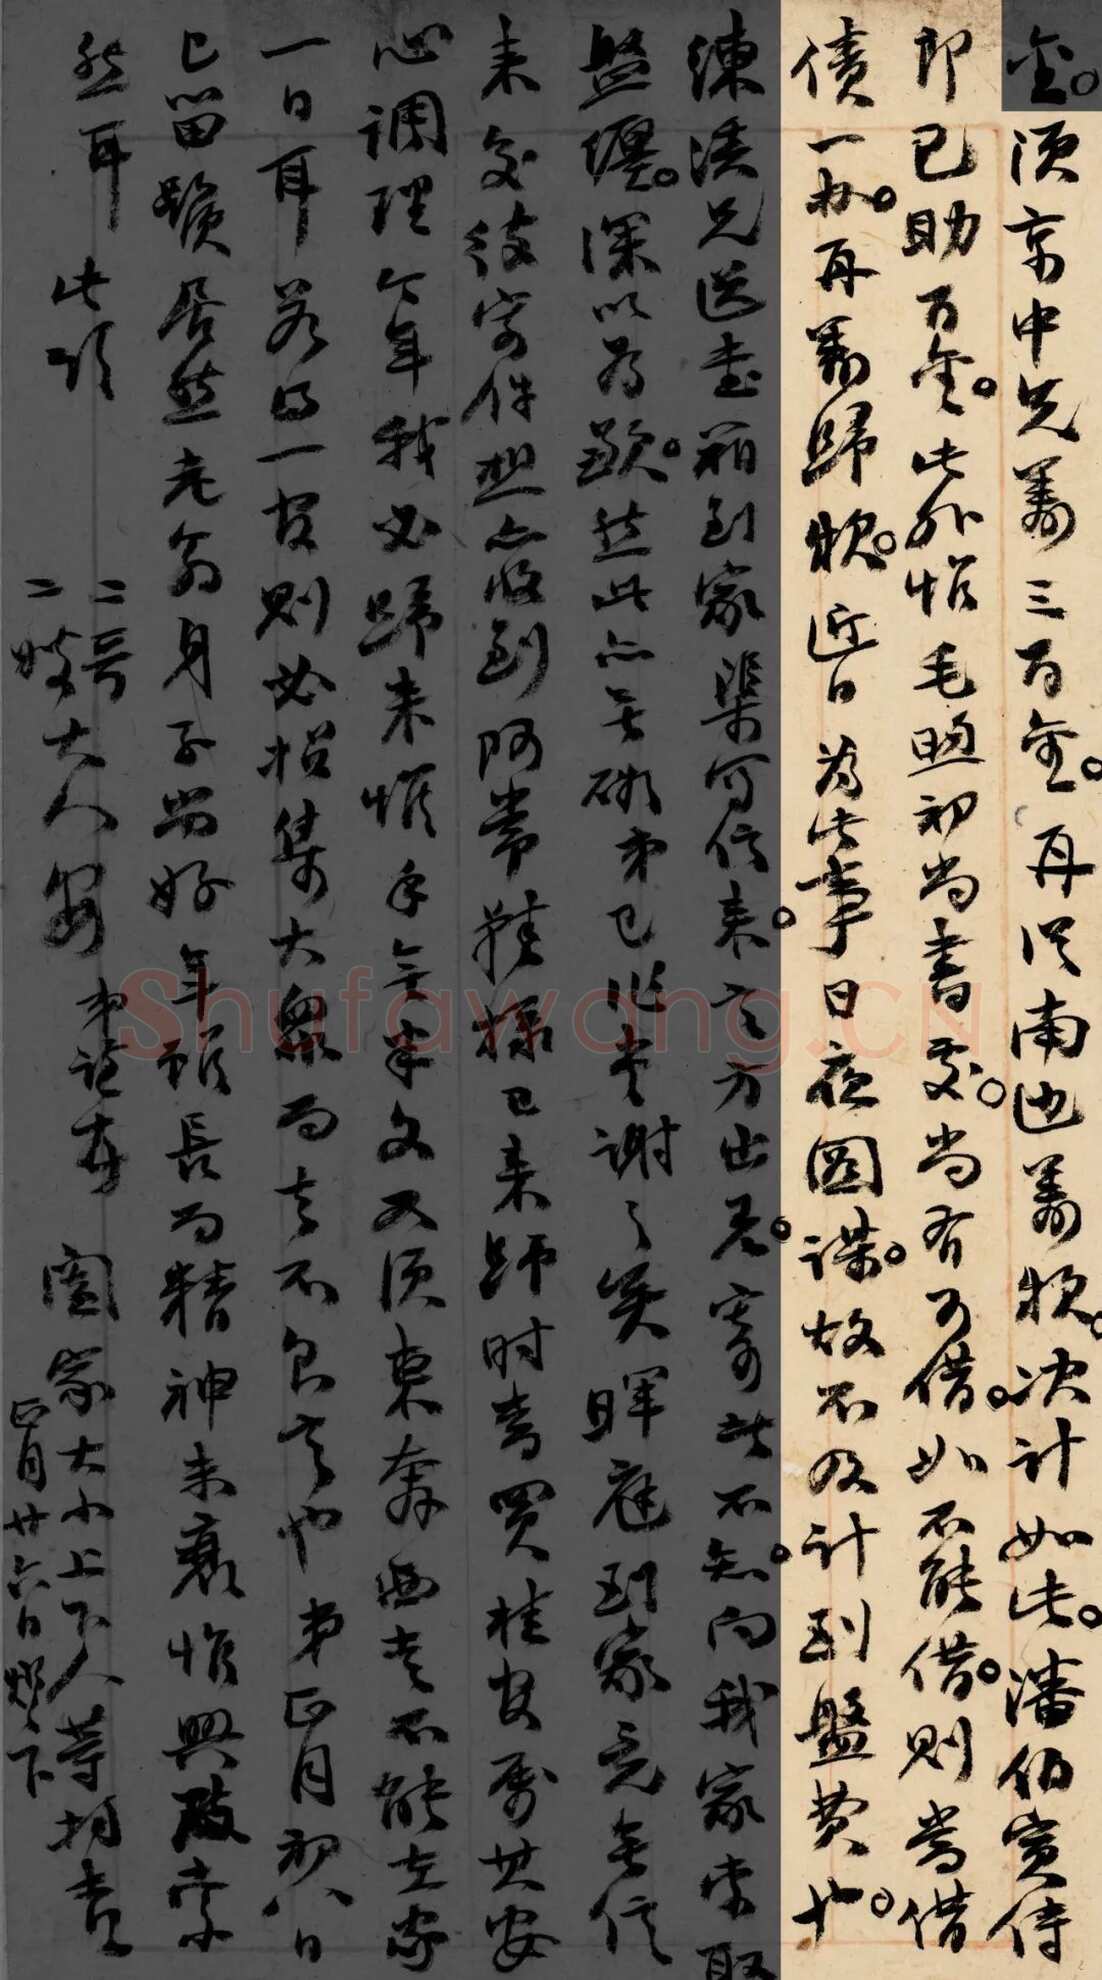 金。須京中兄籌三百金。再從南邊籌款。決計如此。潘伯寅侍
郎已助百金。此外惟毛煦初尚書處。尚有可借。如不能借。則當借
債一批。再籌歸款。近日為此事日夜圖謀。故不及計到盤費也。
練溪兄送書箱到家渠寫信來。言方出產。寄者不知。向我家索取
盤纏。深以為歉。然此亦無礙弟已作書謝之矣暉庭到家竟無信
來交彼寄件想亦收到阿常鞋樣已來歸時當買桂皮屬其安
心調理今年我必歸來惟手無半文又須東奔西走不能在家
一日耳若得一官則必招集大眾而去不食言也弟正月初八日
已留鬚居然老翁身子尚好年雖長而精神未衰惟興致索
然耳 此頌
二哥
二嫂大人安 弟謙 闔家大小上下人等均吉
正月廿六日燈下
Shufawang.CN